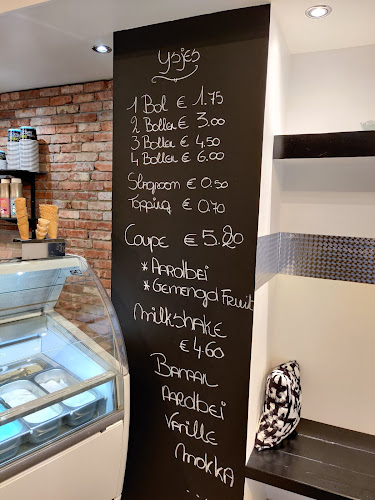 Ysjes
1 Bol € 1.75
2 Bollen € 3.00
3 Bollen € 4.50
4 Bollen € 6.00
Slagroom € 0.50
Topping € 0.70
Coupe € 5.20
* Aardbei
* Gemengd Fruit
Milkshake
€ 4.60
Banaan
Aardbei
Vanille
Mokka
...